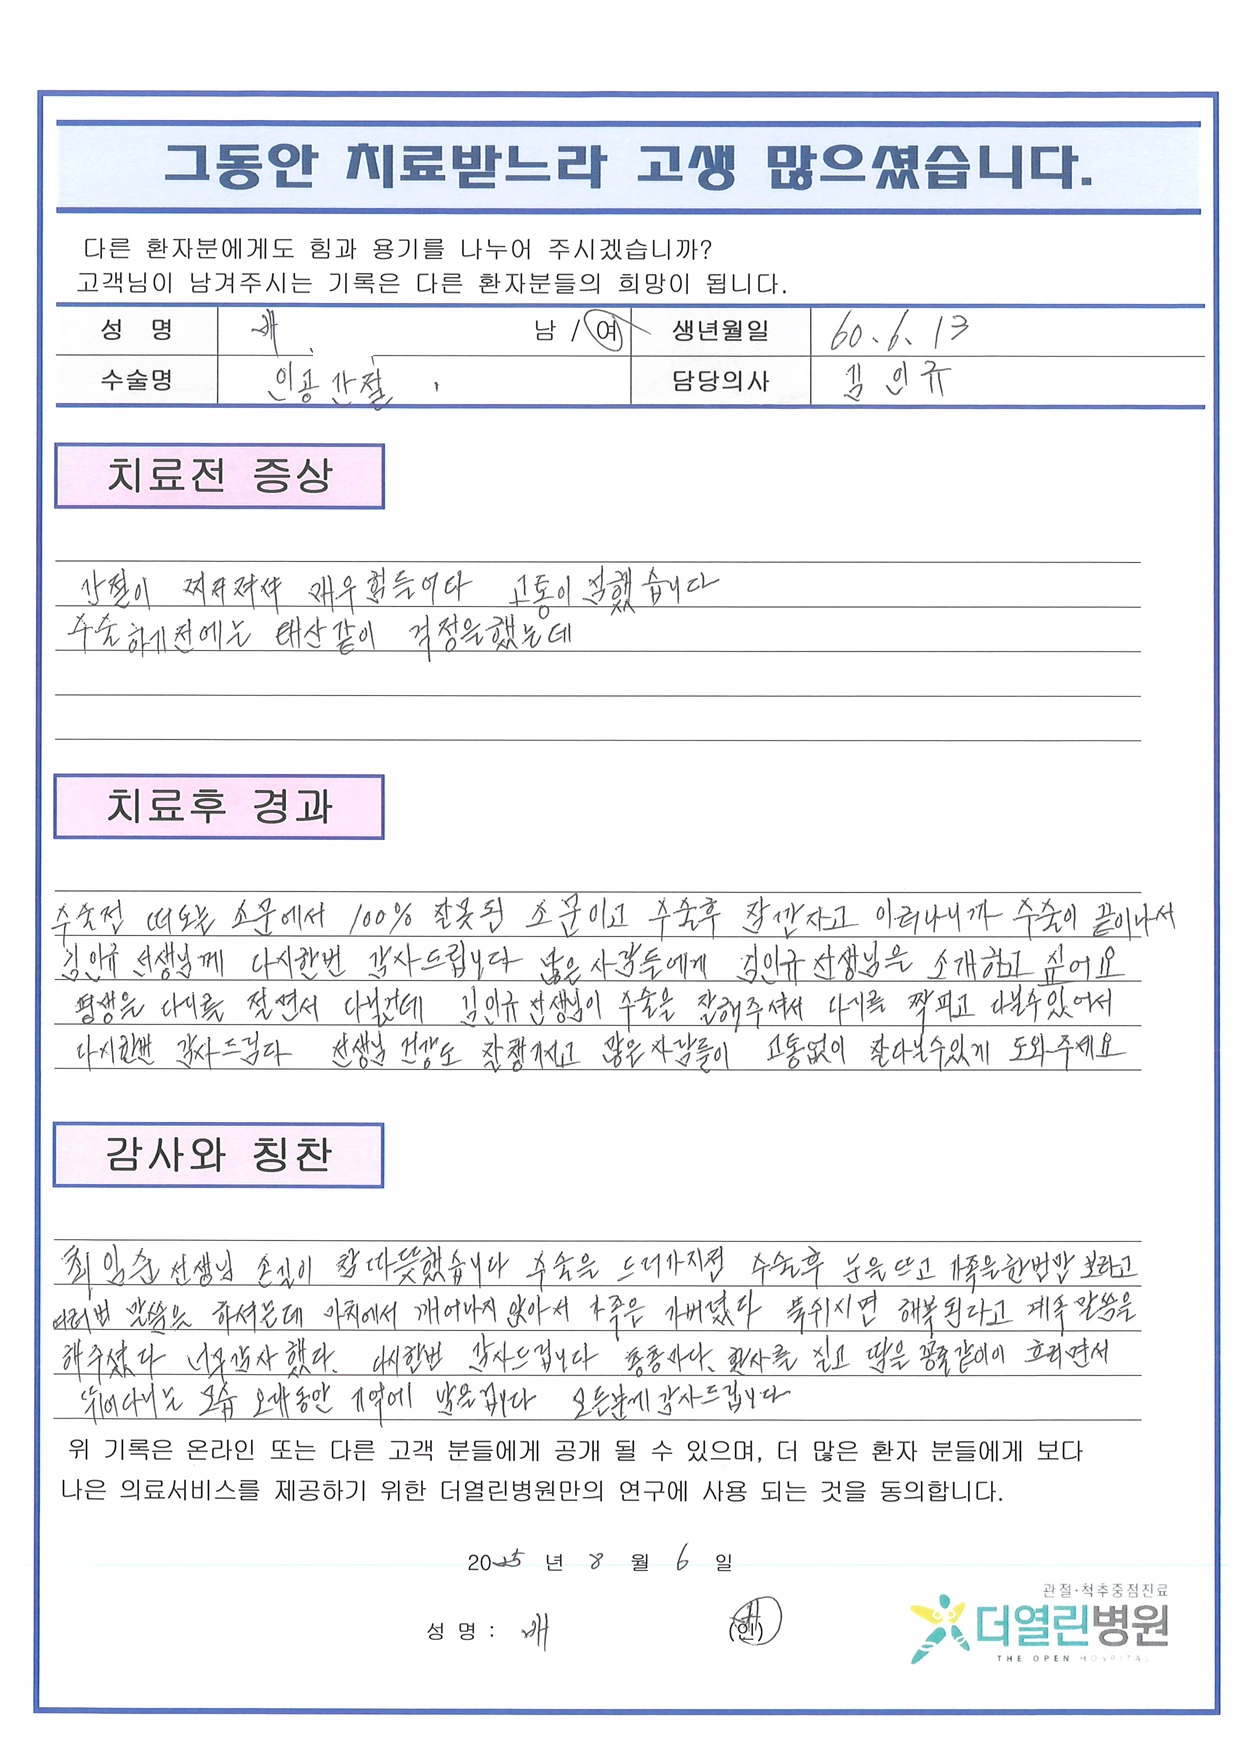 그동안 치료받느라 고생 많으셨습니다.
다른 환자분에게도 힘과 용기를 나누어 주시겠습니까?
고객님이 남겨주시는 기록은 다른 환자분들의 희망이 됩니다.
성 명 배 남 / 여 생년월일 60. 6. 13
수술명 인공관절 담당의사 김인규
치료전 증상
매우 힘들어다 고통이 심했습니다
수술하기전에는 태산같이 걱정을했는데
치료후 경과
수술전 떠도는 소문에서 100% 잘못된 소문이고 수술후 잠깐자고 이러나니까 수술이 끝이나서
김인규 선생님께 다시한번 감사드립니다 많은사람들에게 김인규선생님을 소개하고 싶어요
평생을 다리를 절면서 다닐건데 김인규선생님이 수술을 잘해주셔서 다리를 쫙피고 다닐수있어서
다시한번 감사드립니다 선생님 건강도 잘챙기시고 많은사람들이 고통없이 잘다닐수있게 도와주세요
감사와 칭찬
최임순선생님 손길이 참따뜻했습니다 수술을 드러가지전 수술후 눈을뜨고 가족을한번만 보라고
여러번 말씀을 하셔는데 마취에서 깨어나지 않아서 가족은 가버렸다 푹쉬시면 행복된다고 계속말씀을
해주셨다 너무감사했다. 다시한번 감사드립니다 환자를 싣고 땀을 흐리면서
뛰어다니는 모습 오래동안 기억에 남을겁니다 모든분께감사드립니다
위 기록은 온라인 또는 다른 고객 분들에게 공개 될 수 있으며, 더 많은 환자 분들에게 보다
나은 의료서비스를 제공하기 위한 더열린병원만의 연구에 사용 되는 것을 동의합니다.
2025 년 8 월 6 일
성 명 : 배 (인)
관절·척추중점진료
더열린병원
THE OPEN HOSPITAL